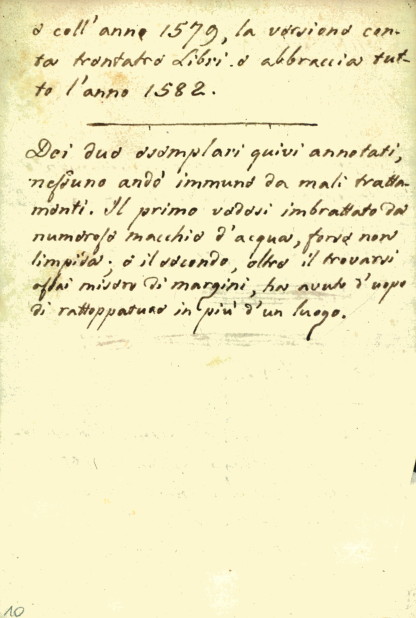 e coll'anno 1579, la versione con-
ta trentatre Libri e abbraccia tut-
to l'anno 1582.
Dei due esemplari quivi annotati,
nessuno andò immune da mali tratta-
menti. Il primo vedesi imbrattato da
numerose macchie d'acqua, forse non
limpida; e il secondo, oltre il trovarsi
assai misero di margini, ha avuto d'uopo
di rattoppature in più d'un luogo.
10